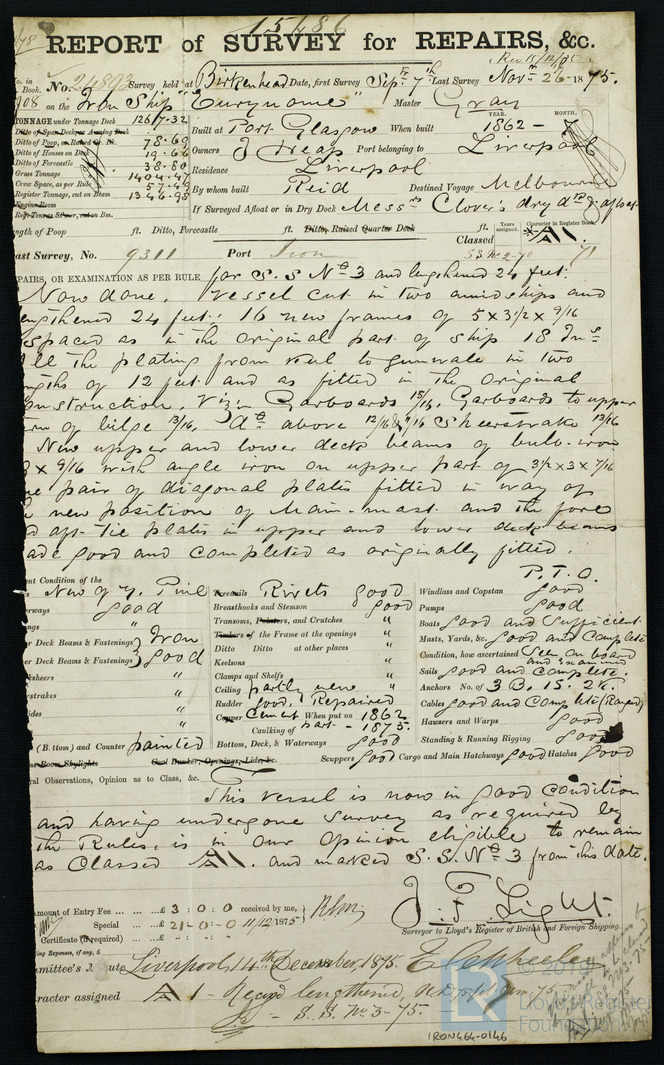 15486
REPORT of SURVEY for REPAIRS, &c.
Rec 15/12/75
No. 24893 Survey held at Birkenhead Date, first Survey Sepr 7th Last Survey Novr 26 1875.
on the Iron Ship "Eurynome" Master Gray
TONNAGE under Tonnage Deck 1267.32
Ditto of Poop, or Raised Qr. Dk. 78.69
Ditto of Houses on Deck 19.66
Ditto of Forecastle 38.80
Gross Tonnage 1404.47
Crew Space, as per Rule 57.49
Register Tonnage, cut on Beam 1346.98
Engine Room
YEAR. MONTH.
Built at Port Glasgow When built 1862 - 7
Owners J Heap Port belonging to Liverpool
Residence Liverpool
By whom built Reid Destined Voyage Melbourne
If Surveyed Afloat or in Dry Dock Messrs Clover's dry dk & afloat
ngth of Poop ft. Ditto, Forecastle ft. Ditto, Raised Quarter Deck ft.
Years assigned. Character in Register Book
Classed A1
S.S. No 2-70
ast Survey, No. 9311 Port Iron
PAIRS, OR EXAMINATION AS PER RULE for S.S No 3 and lengthened 24 feet.
Now done. Vessel cut in two amidships and
engthened 24 feet: 16 new frames of 5 x 3 1/2 x 9/16
spaced as in the original part of ship 18 Ins
ll the plating from keel to gunwale in two
ngths of 12 feet and as fitted in the original
onstruction. Viz: Garboards 15/16. Garboards to upper
rn of bilge 13/16. Do above 12/16 & 11/16 Sheerstrake 13/16
New upper and lower deck beams of bulb-iron
x 9/16 with angle iron on upper part of 3 1/2 x 3 x 7/16
ne pair of diagonal plates fitted in way of
new position of Main-mast and the fore
d aft tie plates in upper and lower deck beams
ade good and completed as originally fitted.
P.T.O.
ent Condition of the
New of Y. Pine
erways good
er Deck Beams & Fastenings } Iron
er Deck Beams & Fastenings } good
sheers "
rstrakes "
ides "
(Bottom) and Counter painted
ne Room Skylights Coal Bunker, Openings, Lids, &c.
Treenails Rivets good
Breasthooks and Stemson good
Transoms, Pointers, and Crutches "
Timbers of the Frame at the openings "
Ditto Ditto at other places "
Keelsons "
Clamps and Shelfs "
Ceiling partly new "
Rudder good, Repaired
Copper Cement When put on 1862
Caulking of part - 1875.
Bottom, Deck, & Waterways good
Scuppers good Cargo and Main Hatchways good Hatches good
Windlass and Capstan good
Pumps good
Boats good and sufficient
Masts, Yards, &c. good and complete
Condition, how ascertained Seen on board and examined
Sails good and complete.
Anchors No. of 3 B. 1S. 2K.
Cables good and complete (Ranged)
Hawsers and Warps good
Standing & Running Rigging good
ral Observations, Opinion as to Class, &c.
This vessel is now in good condition
and having undergone survey as required by
the Rules, is in our opinion eligible to remain
as Classed A1. and marked S.S. No 3 from this date.
mount of Entry Fee ... ... £ 3 : 0 : 0 received by me,
Special ... £ 21-0-0 11/12 1875
Certificate (if required) ... £
J. F. Light.
Surveyor to Lloyd's Register of British and Foreign Shipping.
mmittee's Minute Liverpool, 14th December, 1875.
racter assigned A1 -
S.S. No. 3-75.
© 2019
Lloyd's Register
Foundation
IRON464-0146